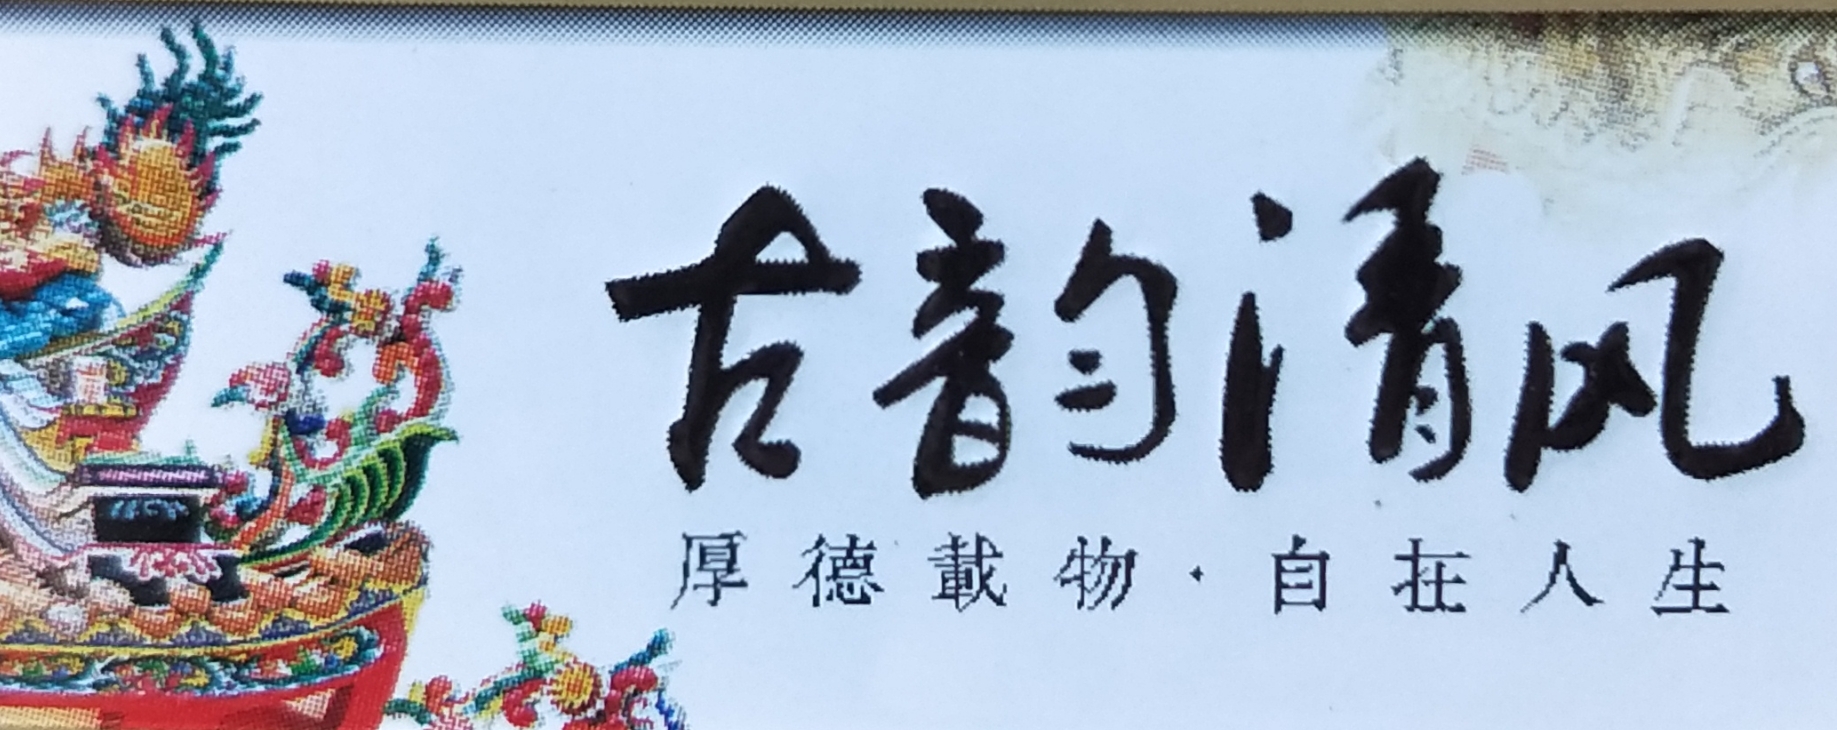 古韵清风
厚德載物·自在人生